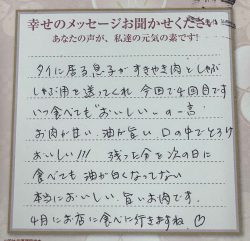 幸せのメッセージお聞かせください
あなたの声が、私達の元気の素です!
タイに居る息子がすきやき肉としゃぶ
しゃぶ用を送ってくれ 今回で4回目です
いつ食べても"おいしい"の一言
お肉が甘い 油が旨い 口の中でとろけ
おいしい!!! 残った分を次の日に
食べても 油が白くなってない
本当においしい 旨いお肉です。
4月にお店に食べに行きますね ♡